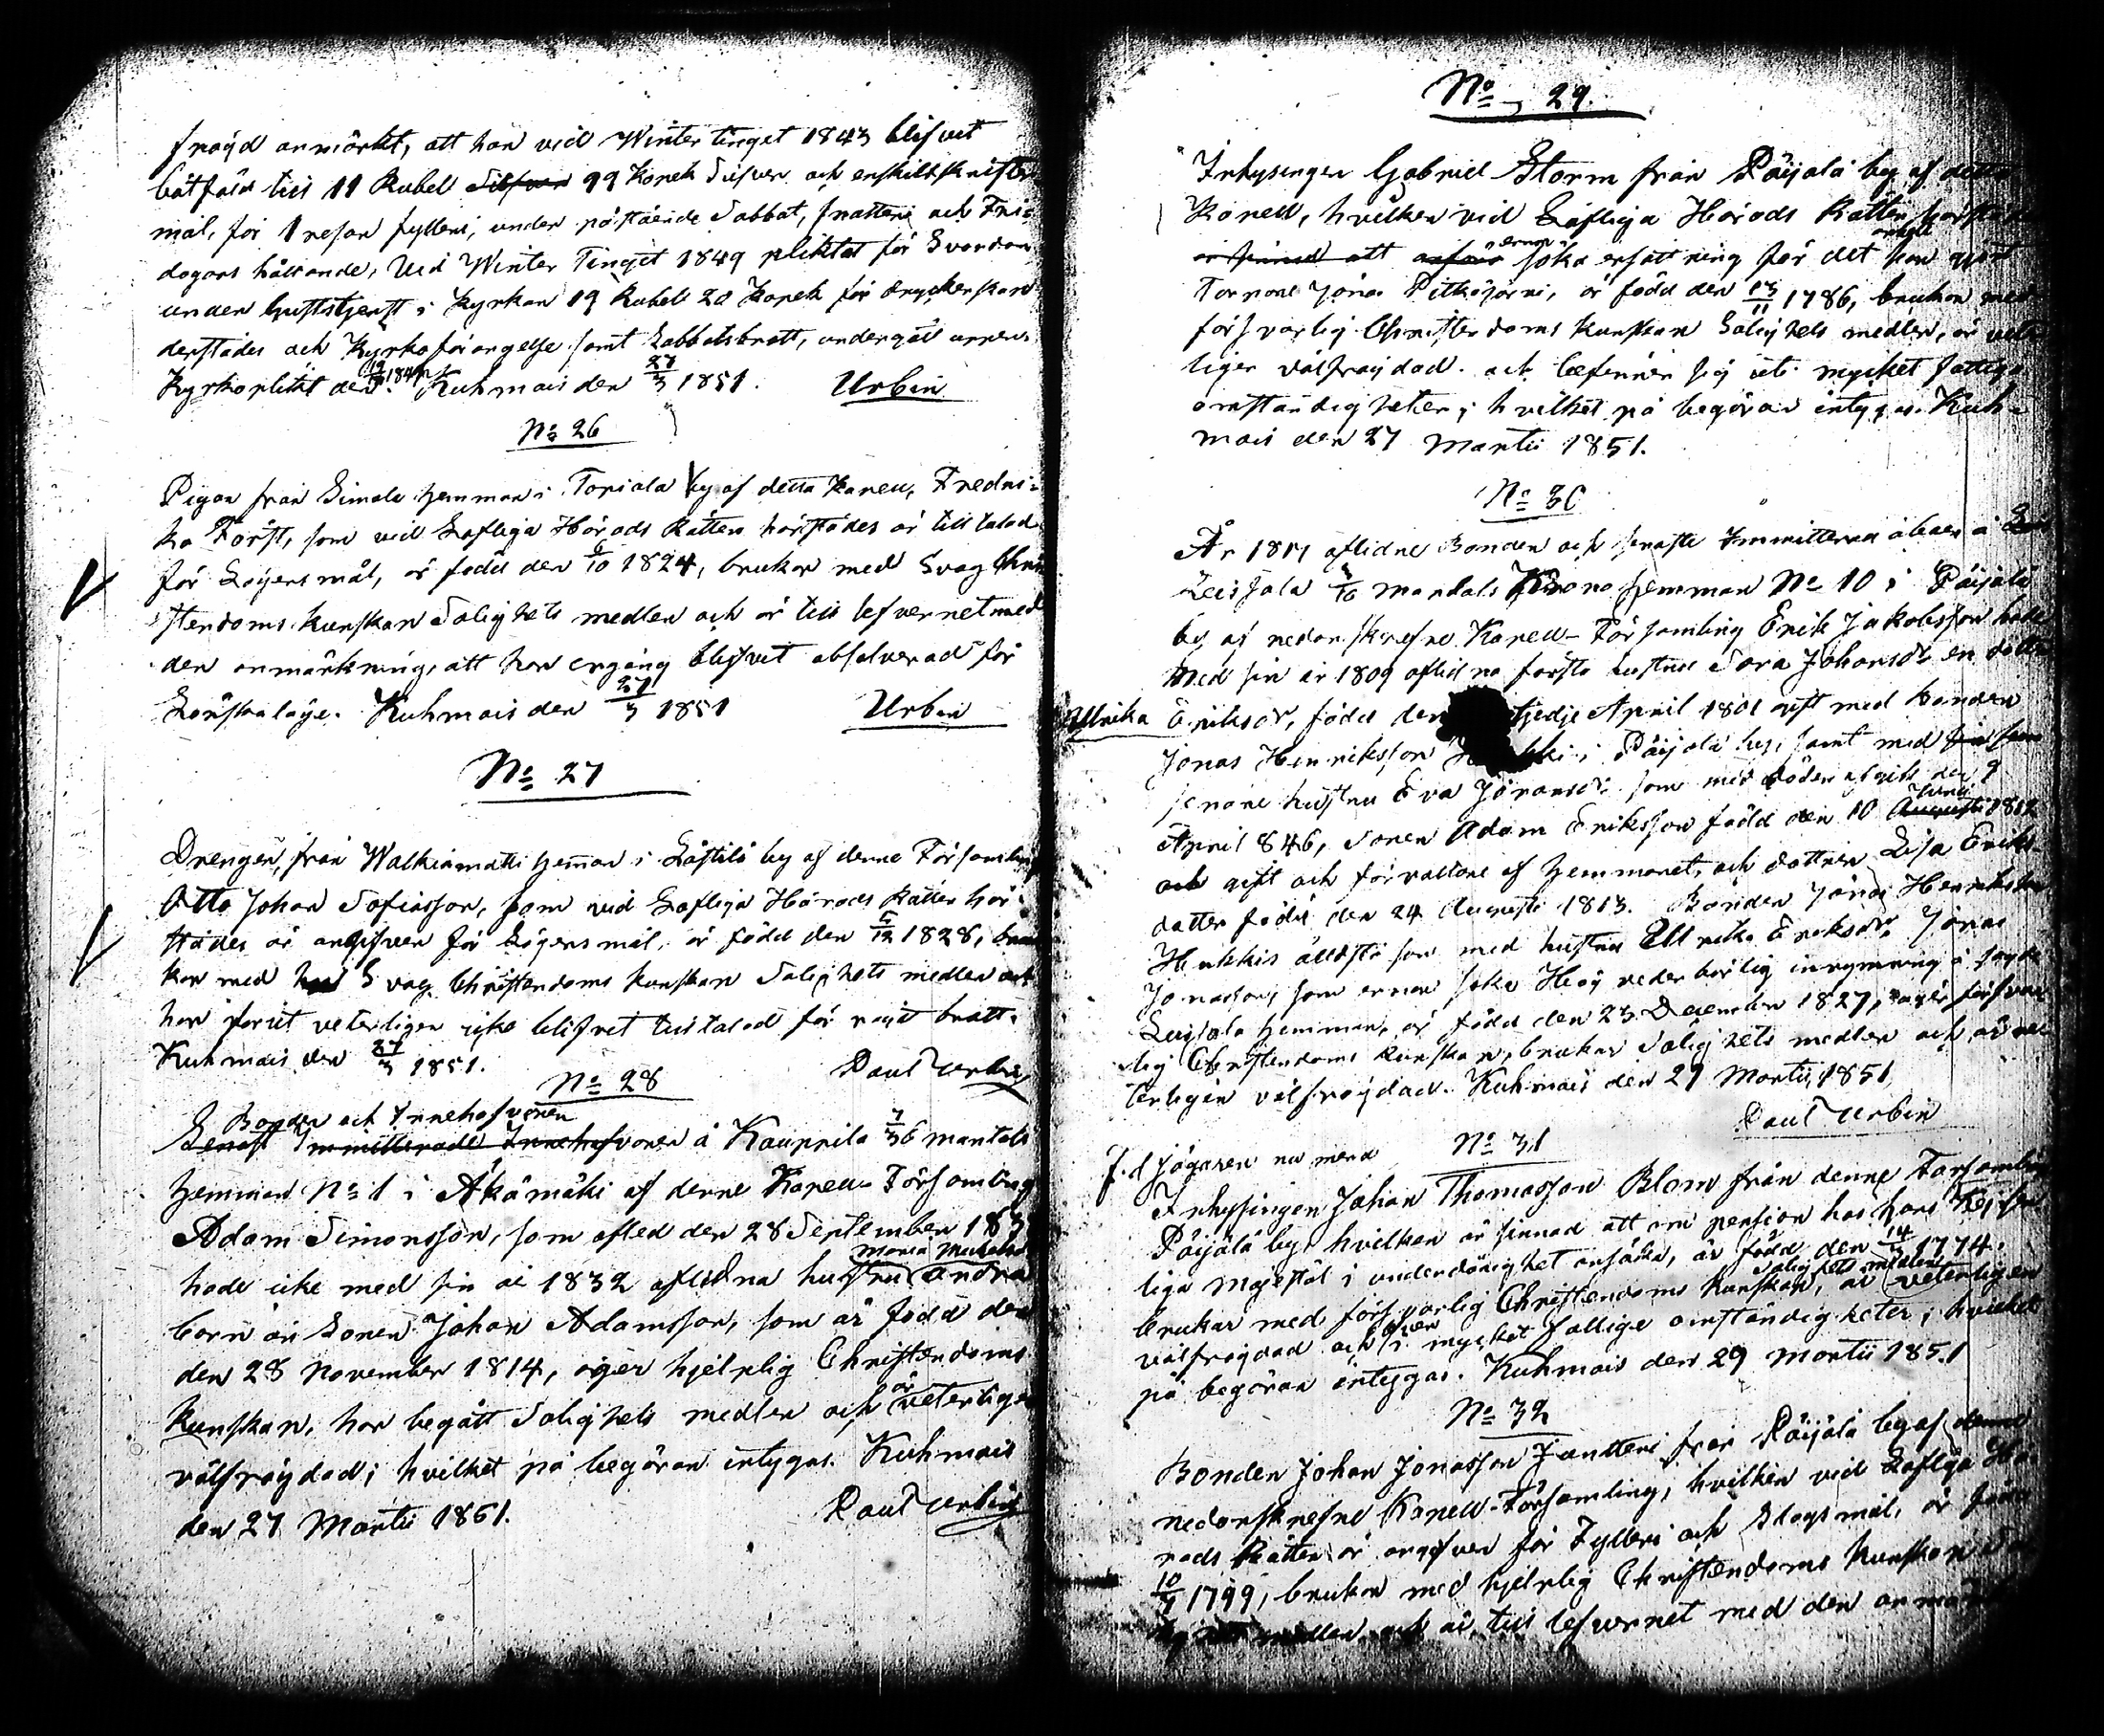 frägd anmärkt, att han vid Winter tinget 1843 blifvet
bötfäld till 11 Rubel Silfver 99 Kopek Silfver och enskilt skrifter
mål, för 1 resan fylleri, under påstående Sabbat, fratteri och Fri=
dagars hållande, Vid Winter Tinget 1849 pliktat för Svordom
under Gudstjenst i Kyrkan 19 Rubel 20 Kopek för dryckenskap
derstädes och Kyrkoförargelse samt Sabbatsbrott, undergått uppen.
Kyrkoplikt den 1849. Kuhmois den 27/3 1851. Urbin
No 26
Pigan från Simola hemman i Toriala by af detta Kapell, Fredri=
ka Förss, som vid Lofliga Härads Rätten härstädes är till talad
för Lägersmål, är född den 6/10 1824, brukar med Svag Chri
stendoms kunskap Salighets medlen och är till lefvernet med
den anmärkning, att hon en gång blifvit absolverad för
Lönskaläge. Kuhmois den 27/3 1851 Urbin
No 27
Drengen, från Walkiamatti hemman i Lästilä by af denne Församling
Otto Johan Sofiasson, som vid Lofliga Härads Rätten här
städes är angifven för Lägersmål, är född den 12 1828, bru
kar med Svag Christendoms kunskap Salighets medlen och
har förut veterligen icke blifvet tilltalad för något brott.
Kuhmois den 27/3 1851. Paul Urbin
No 28
Bonden och Innehafvaren
Senast Immitterade Innehafvaren å Kauppila 7/36 mantals
hemman No 1 i Äkämäki af denne Kapell-Församling
Adam Simonsson, som afled den 28 September 18
Maria
hade icke med sin år 1832 aflidna hustru andra
barn än Sonen Johan Adamsson, som är född den
den 28 November 1814, äger hjelplig Christendoms
är
kunskap, har begått Salighets medlen och veterligen
välfrägdad; hvilket på begäran intygas. Kuhmois
den 27 Martii 1851. Paul Urbin
No 29.
Inhysingen Gabriel Storm från Päijälä by af detta
Kapell, hvilken vid Lofliga Härads Rätten härstädes
är sinnad att söka ersättning för det han gjort
Torparen Jonas Pitkäjärvi, är född den 13/11 1786, brukar med
försvarlig Christendoms kunskap Salighets medlen, är veter
ligen välfrägdad och befinner sig uti mycket fattiga
omständigheter; hvilket på begäran intygas. Kuh-
mois den 27 Martii 1851.
No 30
År 1817 aflidne Bonden och senaste Immitterad åboen å
Leisjala 1/10 mantals Krono hemman No 10 i Päijälä
by af nedanskrefne Kapell-Församling Erik Jakobsson hade
med sin år 1809 aflidna första hustru Sara Johansdr en dotter
Ulrika Eriksdr, född den tjedje April 1801 gift med bonden
Jonas Henriksson i Päijälä by, samt med
senare hustru Eva Jöransdr som med döden afgick den 9
Junii
April 846, Sonen Adam Eriksson född den 10 Augusti 1812
och gift och förvaltare af hemmanet, och dottren Lisa Eriks
dotter född den 24 Augusti 1813. Bonden Jonas Henriksson
Hukkis älldsta son med hustru Ulrika Eriksdr, Jonas
Jonasson, som ernar söka Hög vederbörlig inrymning å sagde
Leisjala hemman, är född den 23 December 1827, äger försvar
lig Christendoms kunskap, brukar Salighets medlen och är ve
terligen välfrägdad. Kuhmois den 27 Martii 1851
Paul Urbin
No 31
F.d Jägaren nu mera
Inhysingen Johan Thomasson Blom från denne Församling
Päijälä by, hvilken är sinnad att om pension hos hans Kejser
liga Majestät i underdånighet ansöka, är född den 14/3 1774.
Salighets medlen
brukar med försvarlig Christendoms kunskap, är veterligen
välfrägdad och i mycket fattige omständigheter; hvilket
på begäran intygas. Kuhmois den 29 Martii 1851
No 32
Bonden Johan Jonasson Jantteri från Päijälä by af denne
nedanskrefne Kapell-Församling, hvilken vid Lofliga Hä
rads Rätten är angifven för Fylleri och Slagsmål, är född
10/7 1799, brukar med hjelplig Christendoms kunskap Sa
medlen och är till lefvernet med den anmärk